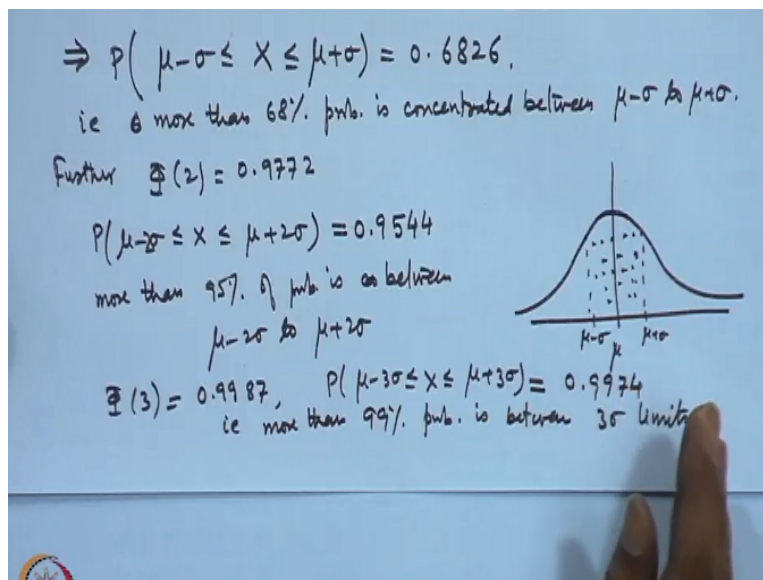 ⇒ P( μ-σ ≤ X ≤ μ+σ) = 0.6826.
ie more than 68% prob. is concentrated between μ-σ to μ+σ.
Further Φ(2) = 0.9772
P(μ-2σ ≤ X ≤ μ+2σ) = 0.9544
more than 95% of prob is between
μ-2σ to μ+2σ
μ-σ μ μ+σ
Φ(3) = 0.9987, P( μ-3σ ≤ X ≤ μ+3σ) = 0.9974
ie more than 99% prob. is between 3σ limits